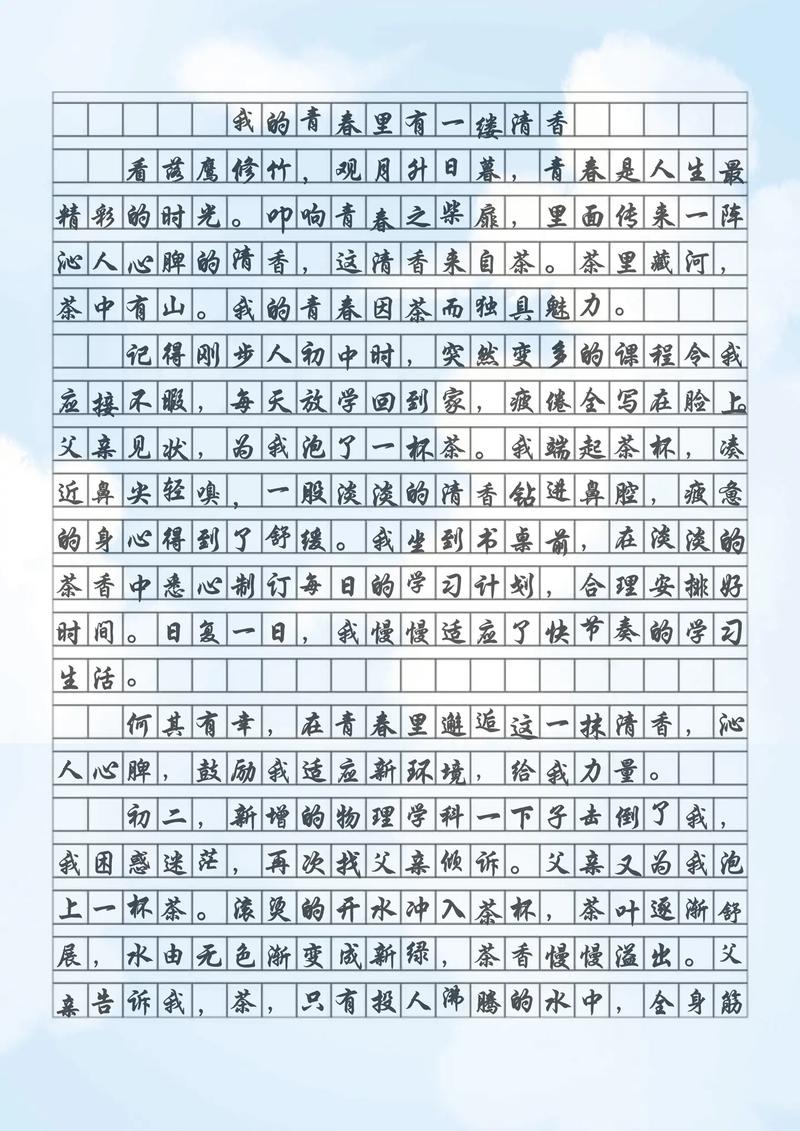 我的青春里有一缕清香
看落鹰修竹，观月升日暮，青春是人生最
精彩的时光。叩响青春之柴扉，里面传来一阵
沁人心脾的清香，这清香来自茶。茶里藏河，
茶中有山。我的青春因茶而独具魅力。
记得刚步人初中时，突然变多的课程令我
应接不暇，每天放学回到家，疲倦全写在脸上。
父亲见状，为我泡了一杯茶。我端起茶杯，凑
近鼻尖轻嗅，一股淡淡的清香钻进鼻腔，疲惫
的身心得到了舒缓。我坐到书桌前，在淡淡的
茶香中悉心制订每日的学习计划，合理安排好
时间。日复一日，我慢慢适应了快节奏的学习
生活。
何其有幸，在青春里邂逅这一抹清香，沁
人心脾，鼓励我适应新环境，给我力量。
初二，新增的物理学科一下子击倒了我，
我困惑迷茫，再次找父亲倾诉。父亲又为我泡
上一杯茶。滚烫的开水冲入茶杯，茶叶逐渐舒
展，水由无色渐变成新绿，茶香慢慢溢出。父
亲告诉我，茶，只有投人沸腾的水中，全身筋